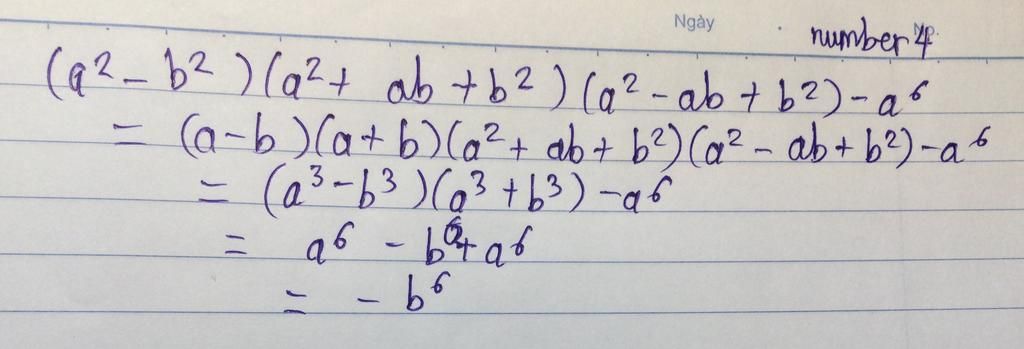 Ngày
number 4
(a² - b²)(a² + ab + b²)(a² - ab + b²) - a⁶
= (a - b)(a + b)(a² + ab + b²)(a² - ab + b²) - a⁶
= (a³ - b³)(a³ + b³) - a⁶
= a⁶ - b⁶ + a⁶
= - b⁶